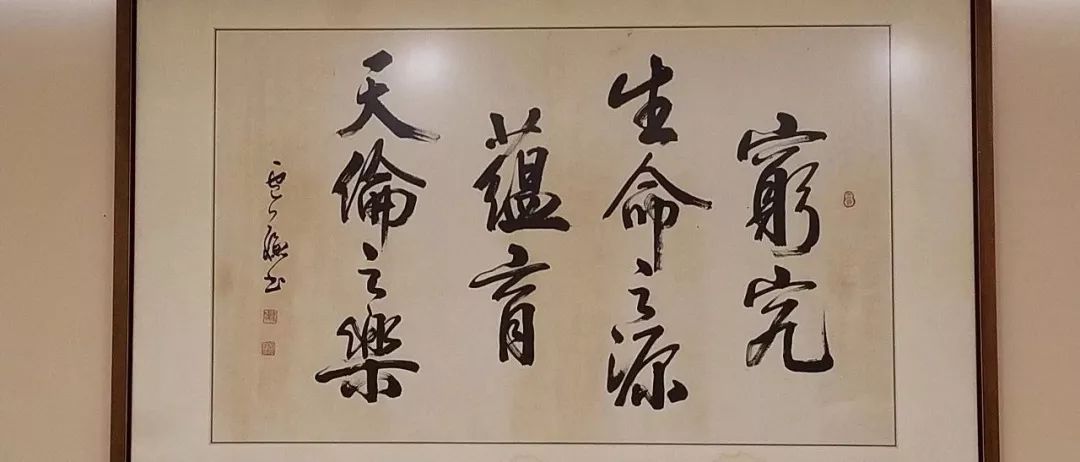 窮究
生命之源
蘊育
天倫之樂